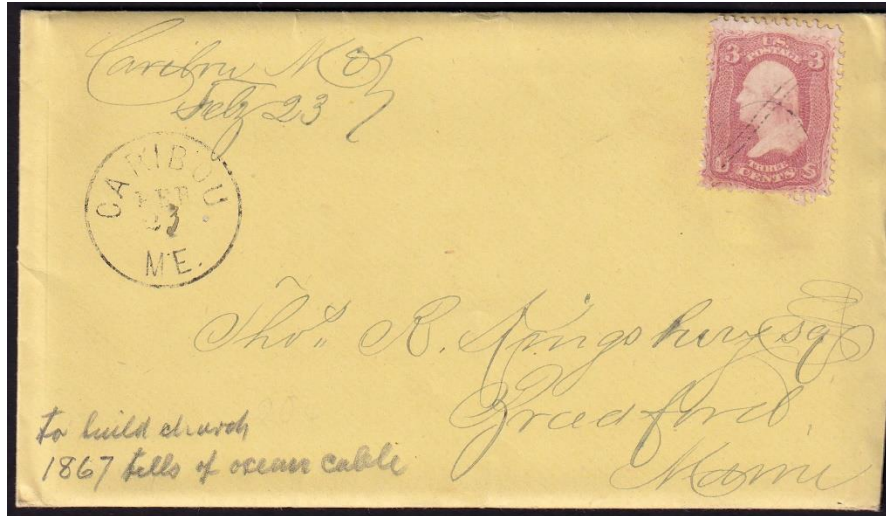 Caribou Me
Feb 23
CARIBOU.
FEB
23
ME.
U.S.
POSTAGE
3 3
U S
THREE
CENTS
Thos. R. Kingsbury Esq
Bradford
Maine
to build church
1867 tells of ocean cable